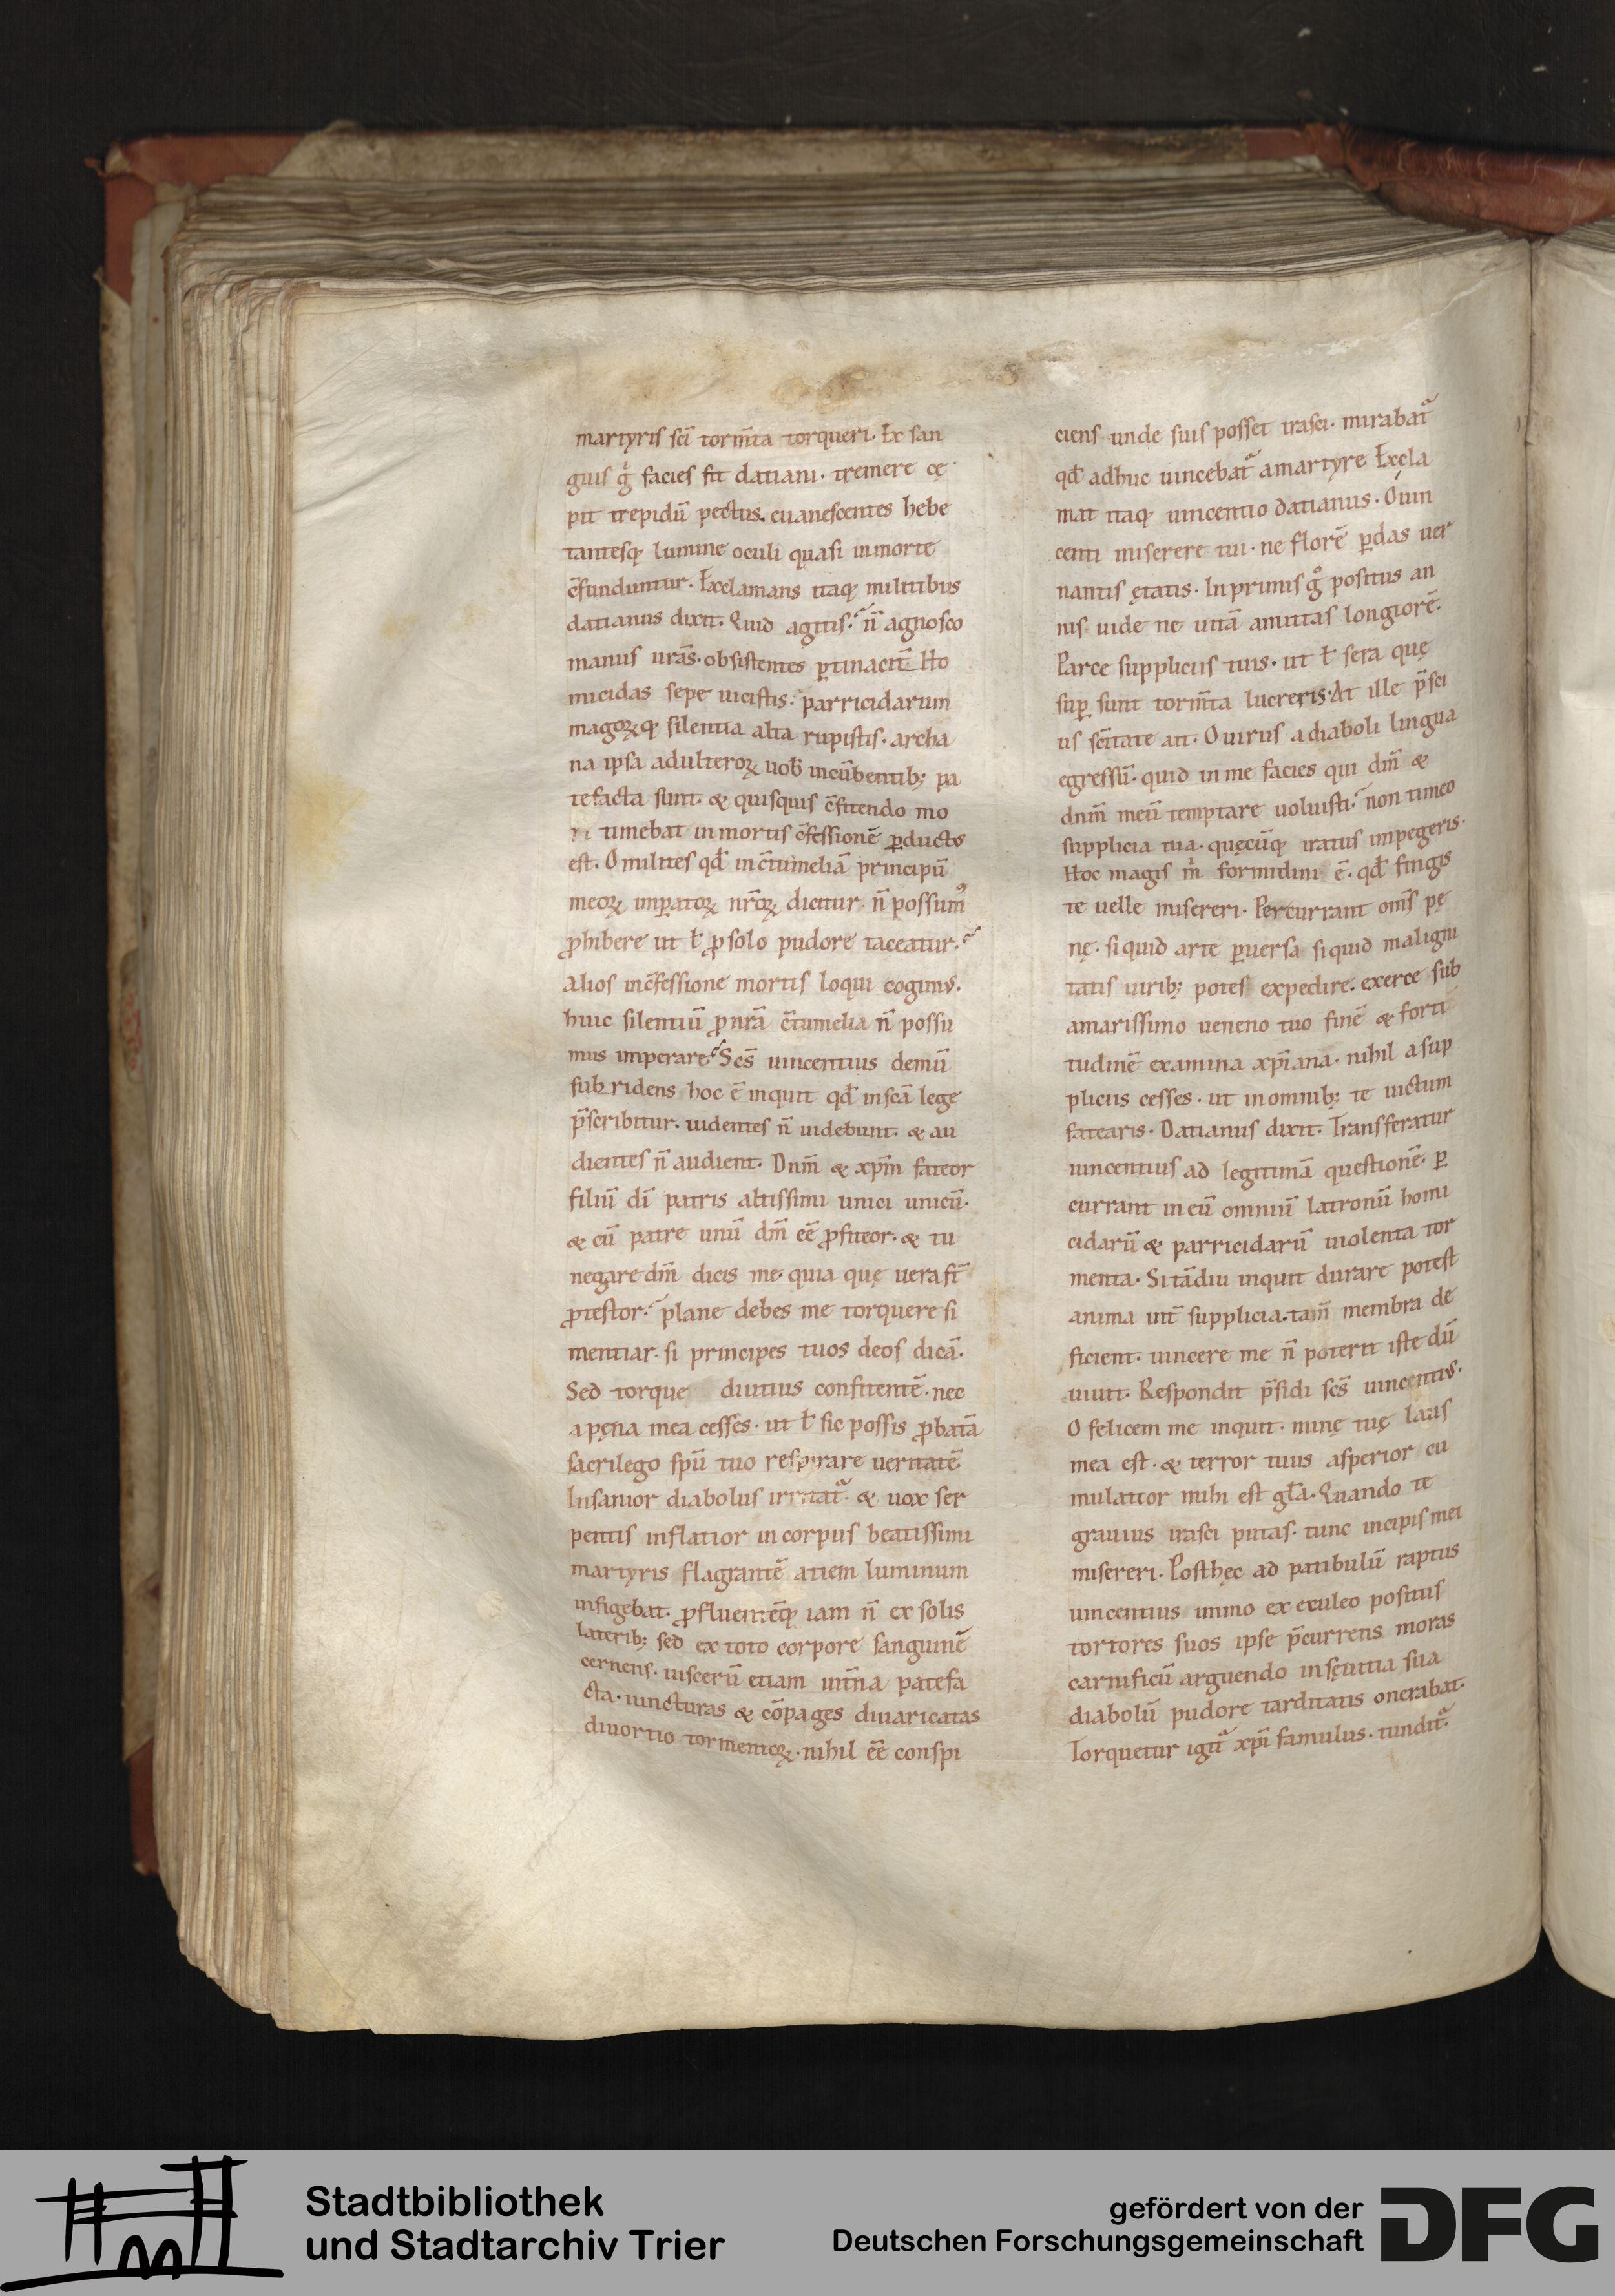 martyris sc̄i torm̄ta torqueri. Ex san
guis g̊ facies fit datiani. tremere cę
pit trepidū pectus. euanescentes hebe
tantesq; lumine oculi quasi in morte
c̄funduntur. Exclamans itaq; militibus
datianus dixit. Quid agitis. n̄ agnosco
manus ur̄as. obsistentes p̱tinacit̄. Ho
micidas sepe uicistis. parricidarum
magoꝝq; silentia alta rupistis. archa
na ipsa adulteroꝝ uob̄ incūbentib; pa
tefacta sunt. & quisquis c̄fitendo mo
ri timebat in mortis c̄fessionē ꝑductus
est. O milites qđ in c̄tumeliā principū
meoꝝ imꝑatoꝝ nr̄oꝝ dicitur. n̄ possumꝰ
ꝓhibere ut ł ꝓ solo pudore taceatur.
Alios in c̄fessione mortis loqui cogimus.
huic silentiū ꝓ nr̄a c̄tumelia n̄ possu
mus imperare. Sc̄s uincentius demū
subridens hoc ē inquit qđ in sc̄a lege
p̄scribitur. uidentes n̄ uidebunt. & au
dientes n̄ audient. Dn̄m & xp̄m fateor
filiū dī patris altissimi unici unicū.
& cū patre unū dm̄ eē ꝓfiteor. & tu
negare dm̄ dicis me. quia quę uera st̄
ꝓtestor. plane debes me torquere si
mentiar. si principes tuos deos dicā.
Sed torque diutius confitentē. nec
a pęna mea cesses. ut ł sic possis ꝓbatā
sacrilego sp̄u tuo respirare ueritatē.
Insanior diabolus irritat̄. & uox ser
pentis inflatior in corpus beatissimi
martyris flagrantē atiem luminum
infigebat. ꝓfluentēq; iam n̄ ex solis
laterib; sed ex toto corpore sanguinē
cernens. uiscerū etiam int̄na patefa
cta. iuncturas & cōpages diuaricatas
diuortio tormentoꝝ. nihil eē conspi
ciens unde suis posset irasci. mirabat̄
qđ adhuc uincebat̄ a martyre. Excla
mat itaq; uincentio datianus. O uin
centi miserere tui. ne florē ꝑdas uer
nantis ętatis. In primis g̊ positus an
nis uide ne uitā amittas longiorē.
Parce suppliciis tuis. ut ł sera quę
suꝑ sunt torm̄ta lucreris. At ille p̄sci
us sc̄itate ait. O uirus a diaboli lingua
egressū. quid in me facies qui dm̄ &
dn̄m meū temptare uoluisti. non timeo
supplicia tua. quęcūq; iratus impegeris.
Hoc magis m̊ formidini ē. qđ fingis
te uelle misereri. Percurrant om̄s pę
nę. si quid arte ꝑuersa si quid maligni
tatis uirib; potes expedire. exerce sub
amarissimo ueneno tuo finē & forti
tudinē examina xp̄iana. nihil a sup
pliciis cesses. ut in omnib; te uictum
fatearis. Datianus dixit. Transferatur
uincentius ad legitimā questionē. ꝑ
currant in eū omniū latronū homi
cidarū & parricidarū uiolenta tor
menta. Si tādiu inquit durare potest
anima int̄ supplicia. tam̄ membra de
ficient. uincere me n̄ poterit iste dū
uiuit. Respondit p̄sidi sc̄s uincentius.
O felicem me inquit. minę tuę laus
mea est. & terror tuus asperior cu
mulatior mihi est gła. Quando te
grauius irasci putas. tunc incipis mei
misereri. Posthęc ad patibulū raptus
uincentius immo ex eculeo positus
tortores suos ipse p̄currens moras
carnificū arguendo in sęuitia sua
diabolū pudore tarditatis onerabat.
Torquetur igit̄ xp̄i famulus. tundit̄.
Stadtbibliothek
und Stadtarchiv Trier
gefördert von der
Deutschen Forschungsgemeinschaft
DFG